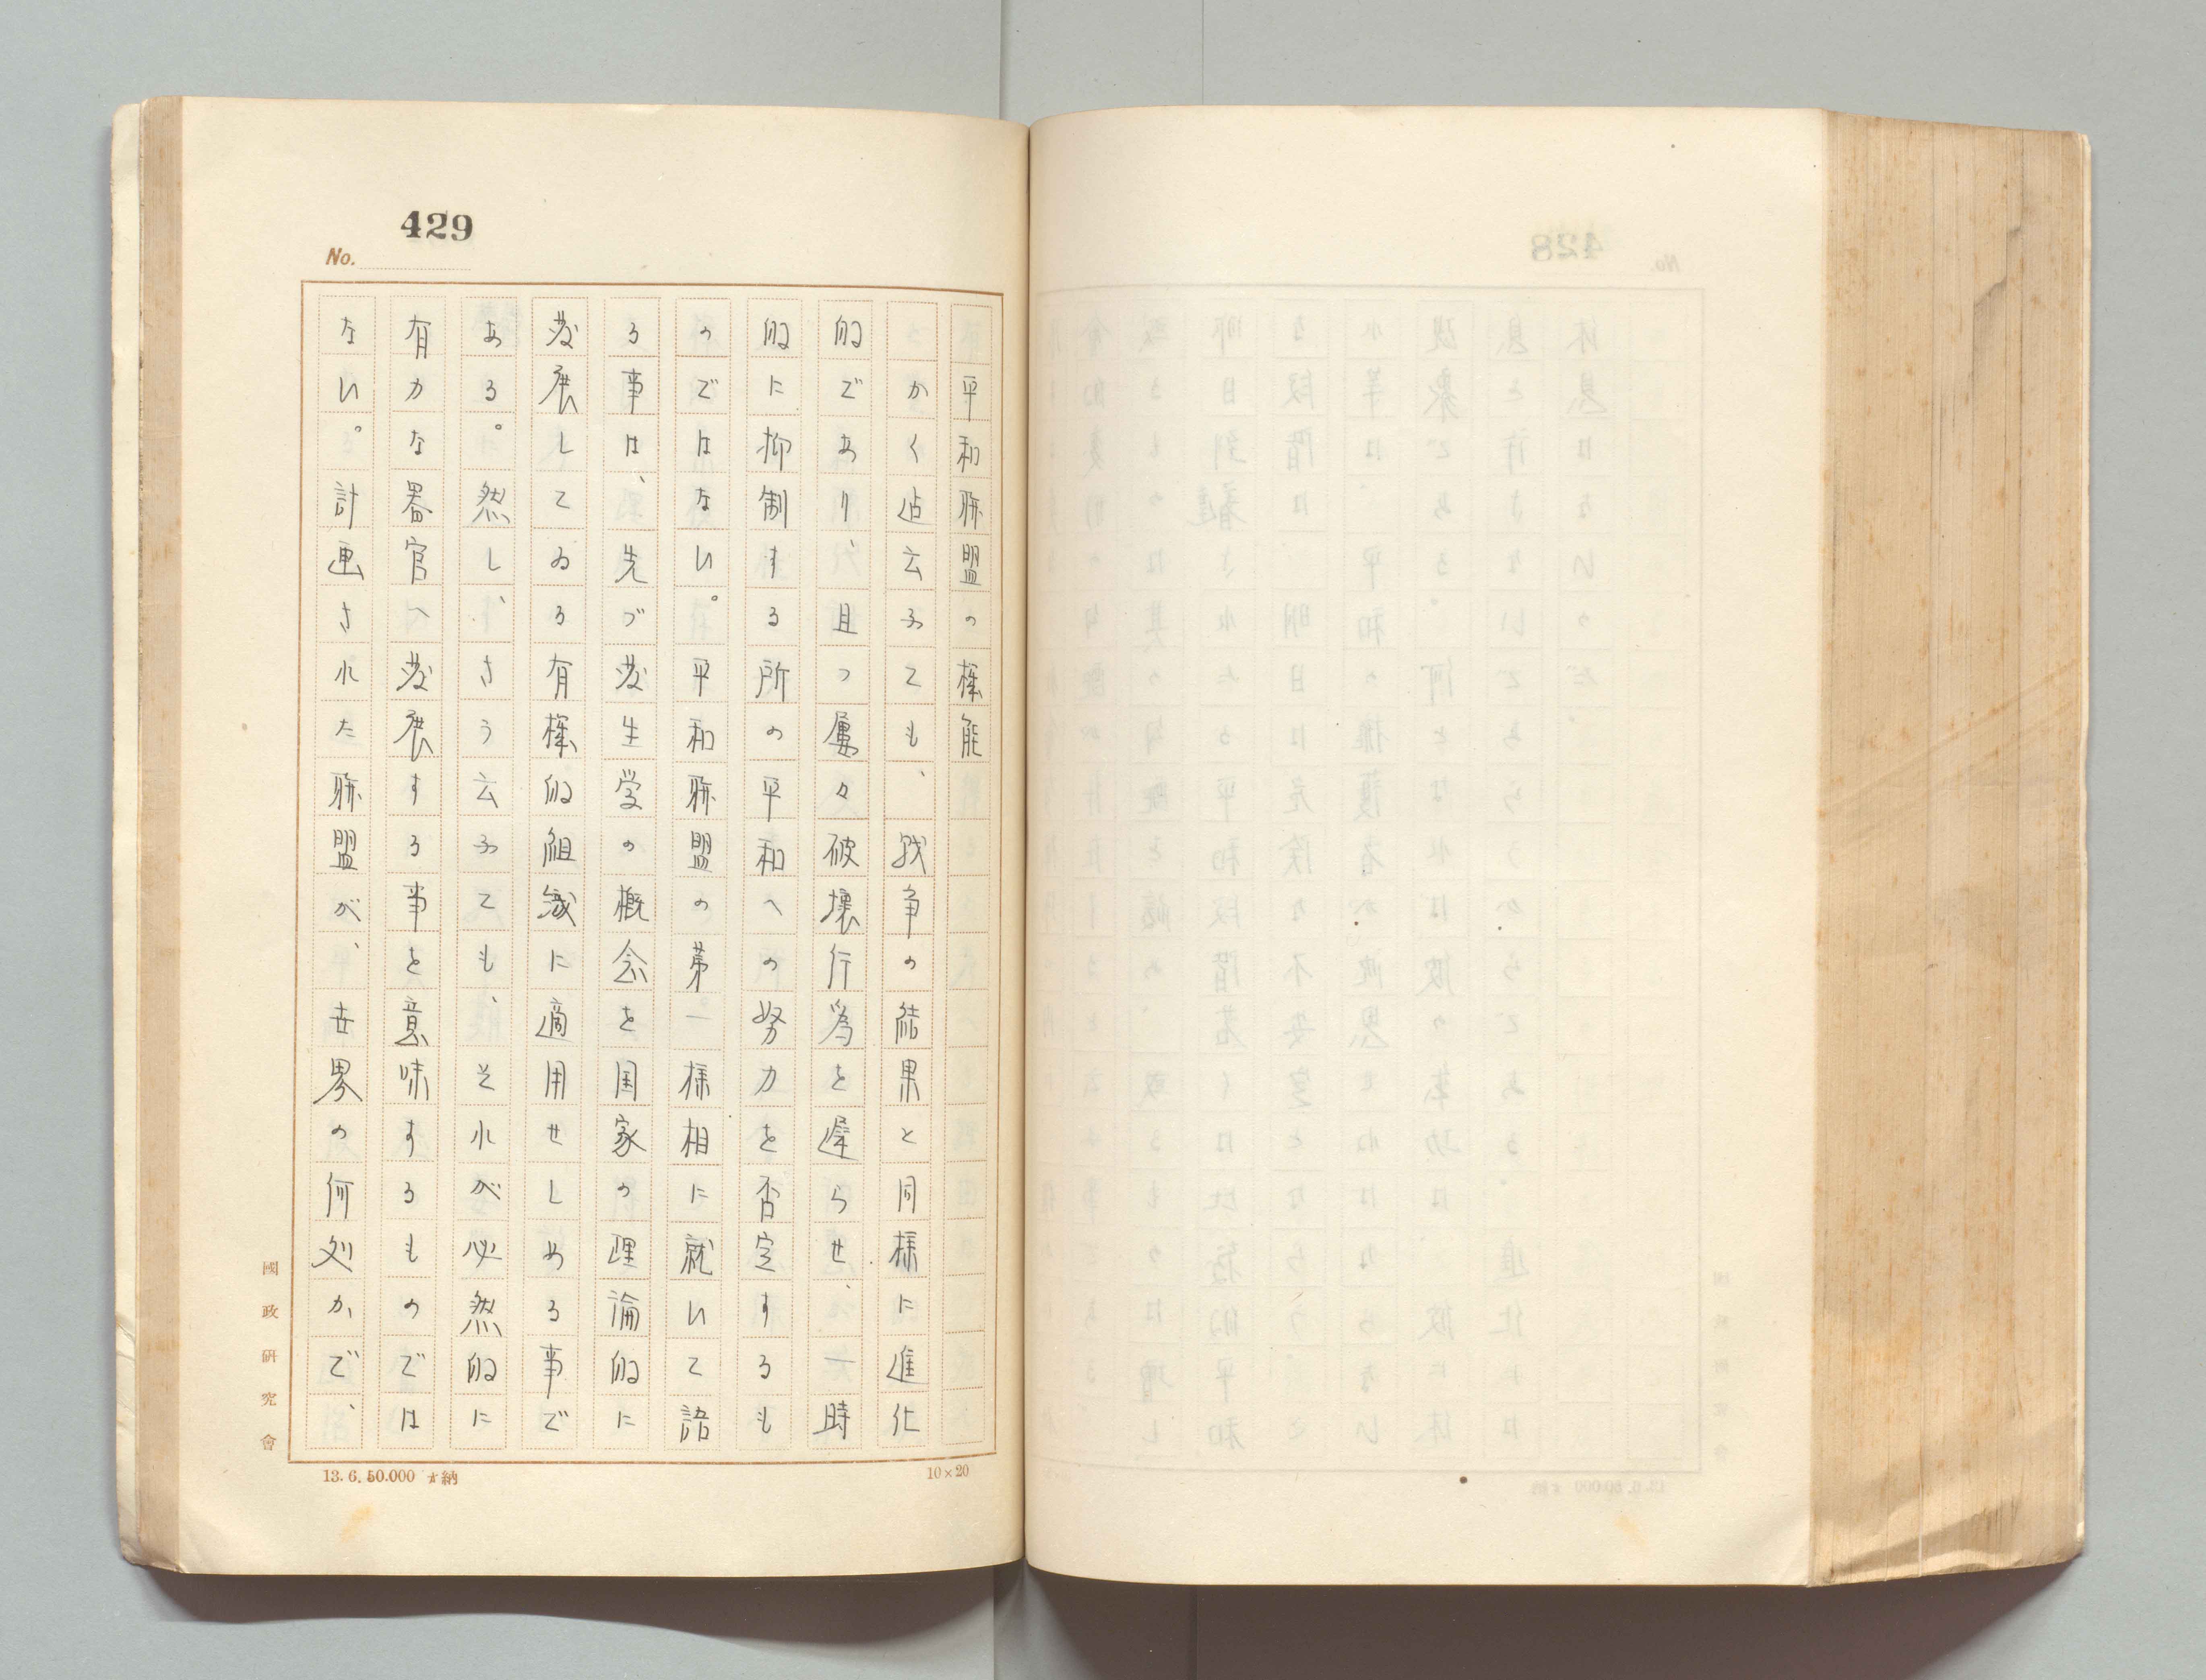 429
No.
平和聯盟の機能
かく迠云ふても、戦争の結果と同様に進化
的であり、且つ屢々破壊行為を遅らせ、一時
的に抑制する所の平和への努力を否定するも
のではない。平和聯盟の第一様相に就いて語
る事は、先づ発生学の概念を国家の理論的に
発展してゐる有機的組織に適用せしめる事で
ある。然し、さう云ふても、それが必然的に
有力な器官へ発展する事を意味するものでは
ない。計画された聯盟が、世界の何処かで、
國政研究會
13.6.50.000 納
10×20